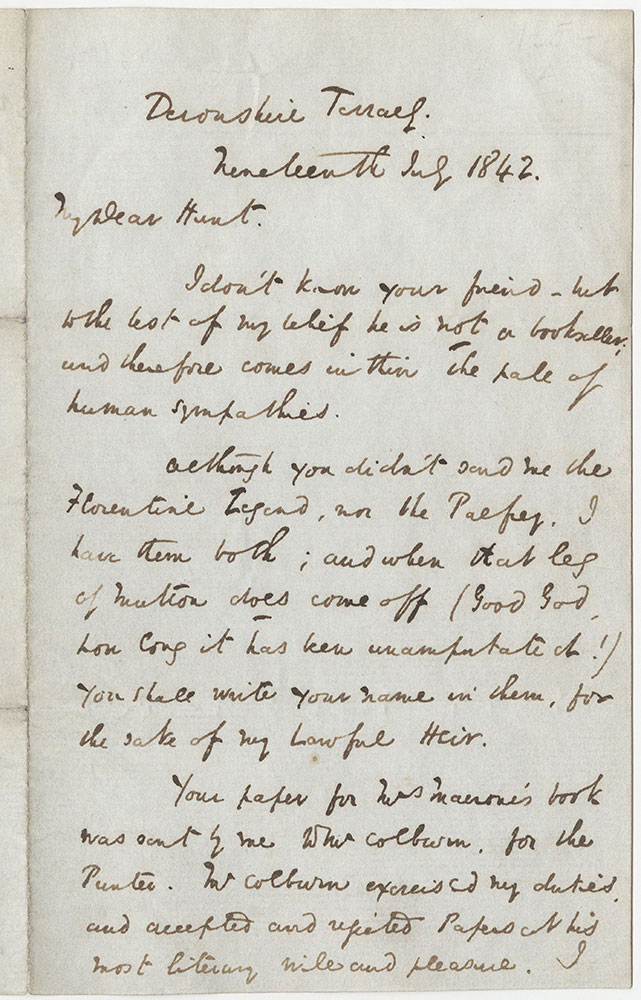 Devonshire Terrace.
Nineteenth July 1842.
My Dear Hunt.
I don't know your friend – but
to the best of my belief he is not a bookseller,
and therefore comes within the pale of
human sympathies.
Although you didn't send me the
Florentine Legend, nor the Palfrey, I
have them both; and when that leg
of mutton does come off (Good God,
how long it has been unamputated!)
you shall write your name in them, for
the sake of my Lawful Heir.
Your paper for Mrs Macrone's book
was sent by me to Mr Colburn, for the
Printer. Mr Colburn exercised my duties,
and accepted and rejected Papers at his
most literary will and pleasure. I